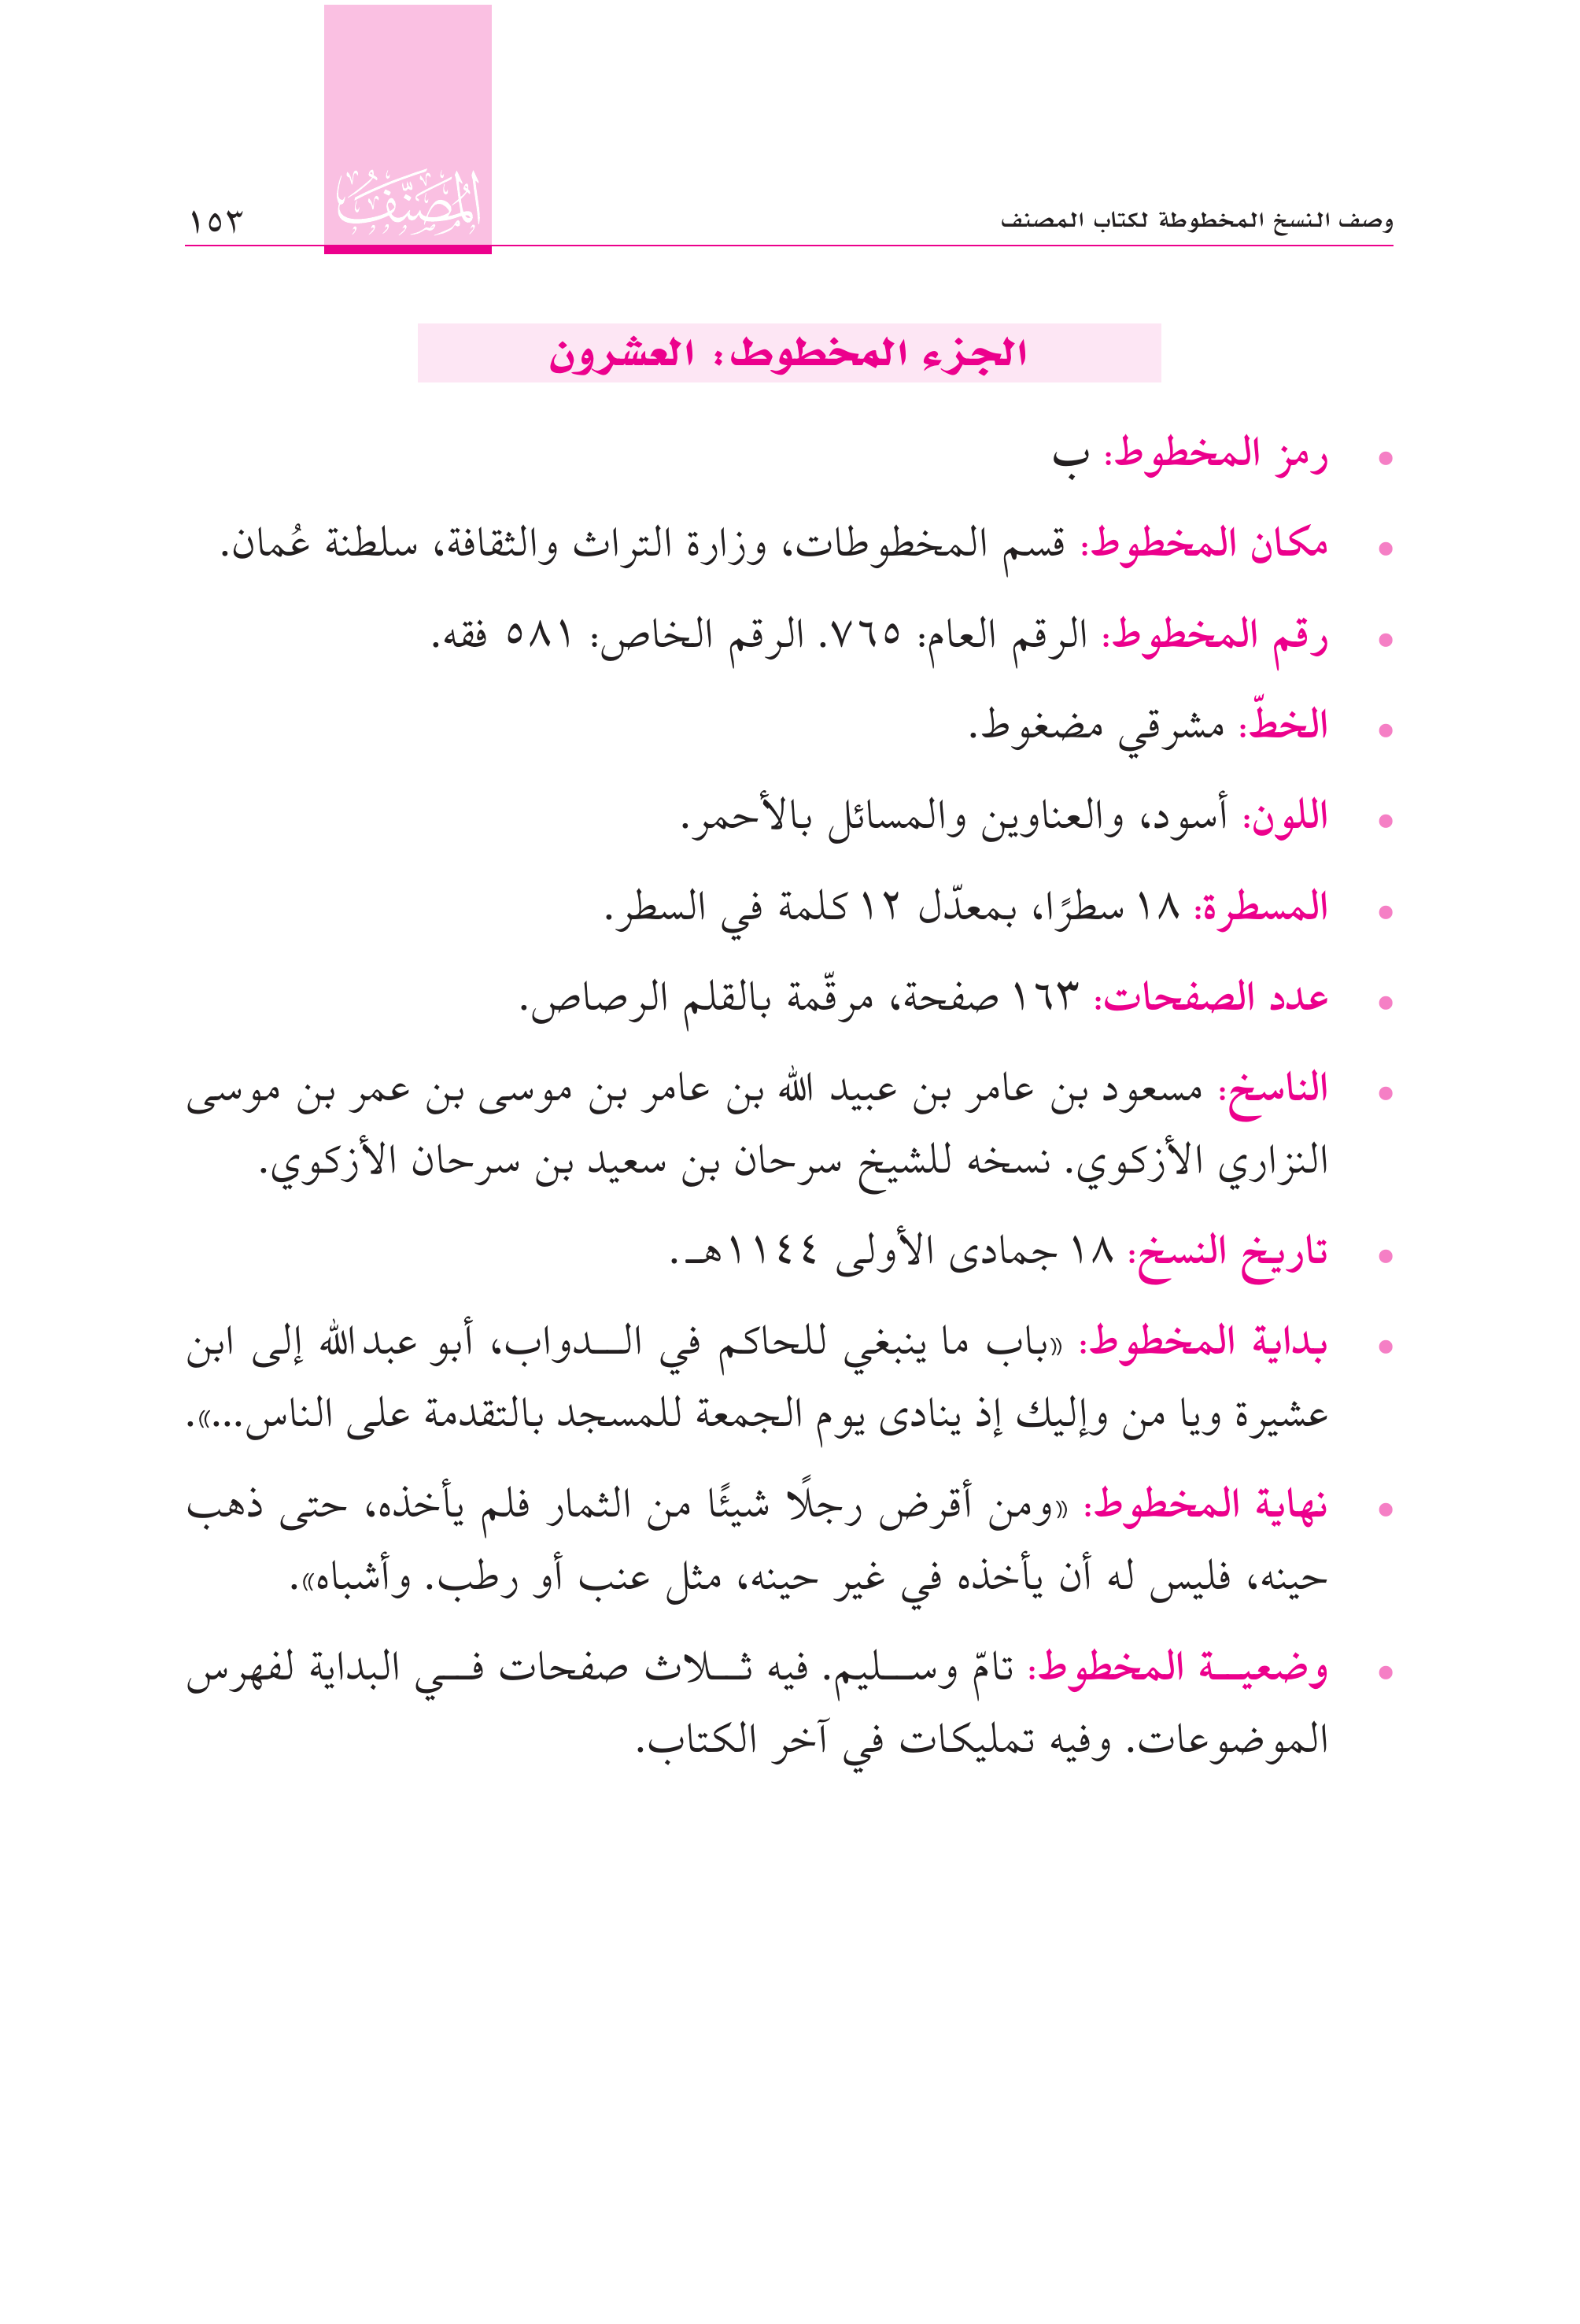 وصف النسخ المخطوطة لكتاب المصنف
المُصَنَّف
١٥٣
الجزء المخطوط: العشرون
• رمز المخطوط: ب
• مكان المخطوط: قسم المخطوطات، وزارة التراث والثقافة، سلطنة عُمان.
• رقم المخطوط: الرقم العام: ٧٦٥. الرقم الخاص: ٥٨١ فقه.
• الخطّ: مشرقي مضغوط.
• اللون: أسود، والعناوين والمسائل بالأحمر.
• المسطرة: ١٨ سطرًا، بمعدّل ١٢ كلمة في السطر.
• عدد الصفحات: ١٦٣ صفحة، مرقّمة بالقلم الرصاص.
• الناسخ: مسعود بن عامر بن عبيد الله بن عامر بن موسى بن عمر بن موسى
النزاري الأزكوي. نسخه للشيخ سرحان بن سعيد بن سرحان الأزكوي.
• تاريخ النسخ: ١٨ جمادى الأولى ١١٤٤هـ.
• بداية المخطوط: «باب ما ينبغي للحاكم في الـــدواب، أبو عبدالله إلى ابن
عشيرة ويا من وإليك إذ ينادى يوم الجمعة للمسجد بالتقدمة على الناس...».
• نهاية المخطوط: «ومن أقرض رجلًا شيئًا من الثمار فلم يأخذه، حتى ذهب
حينه، فليس له أن يأخذه في غير حينه، مثل عنب أو رطب. وأشباه».
• وضعيـــة المخطوط: تامّ وســـليم. فيه ثـــلاث صفحات فـــي البداية لفهرس
الموضوعات. وفيه تمليكات في آخر الكتاب.